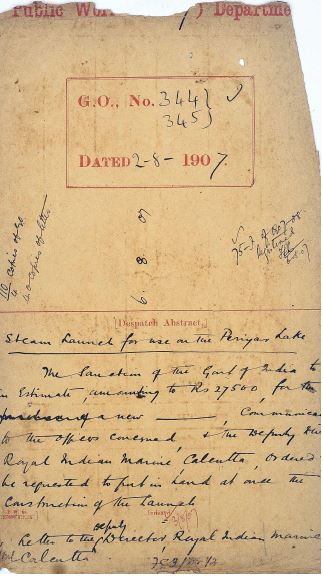 Public Wor ) Departme
G.O., No. 344 }
345 }
DATED 2-8-1907.
6. 8. 07
110 copies of GO
40 copies of letter
[Despatch Abstract.]
Steam Launch for use on the Periyar Lake
The Sanction of the Govt of India to
an Estimate, amounting to Rs 27500, for the
purchase of a new ———, Communica
to the officers concerned, & the Deputy Dir
Royal Indian Marine, Calcutta, ordered
be requested to put in hand at once the
Construction of the Launch
Letter to the Deputy Director, Royal Indian Marine
Calcutta